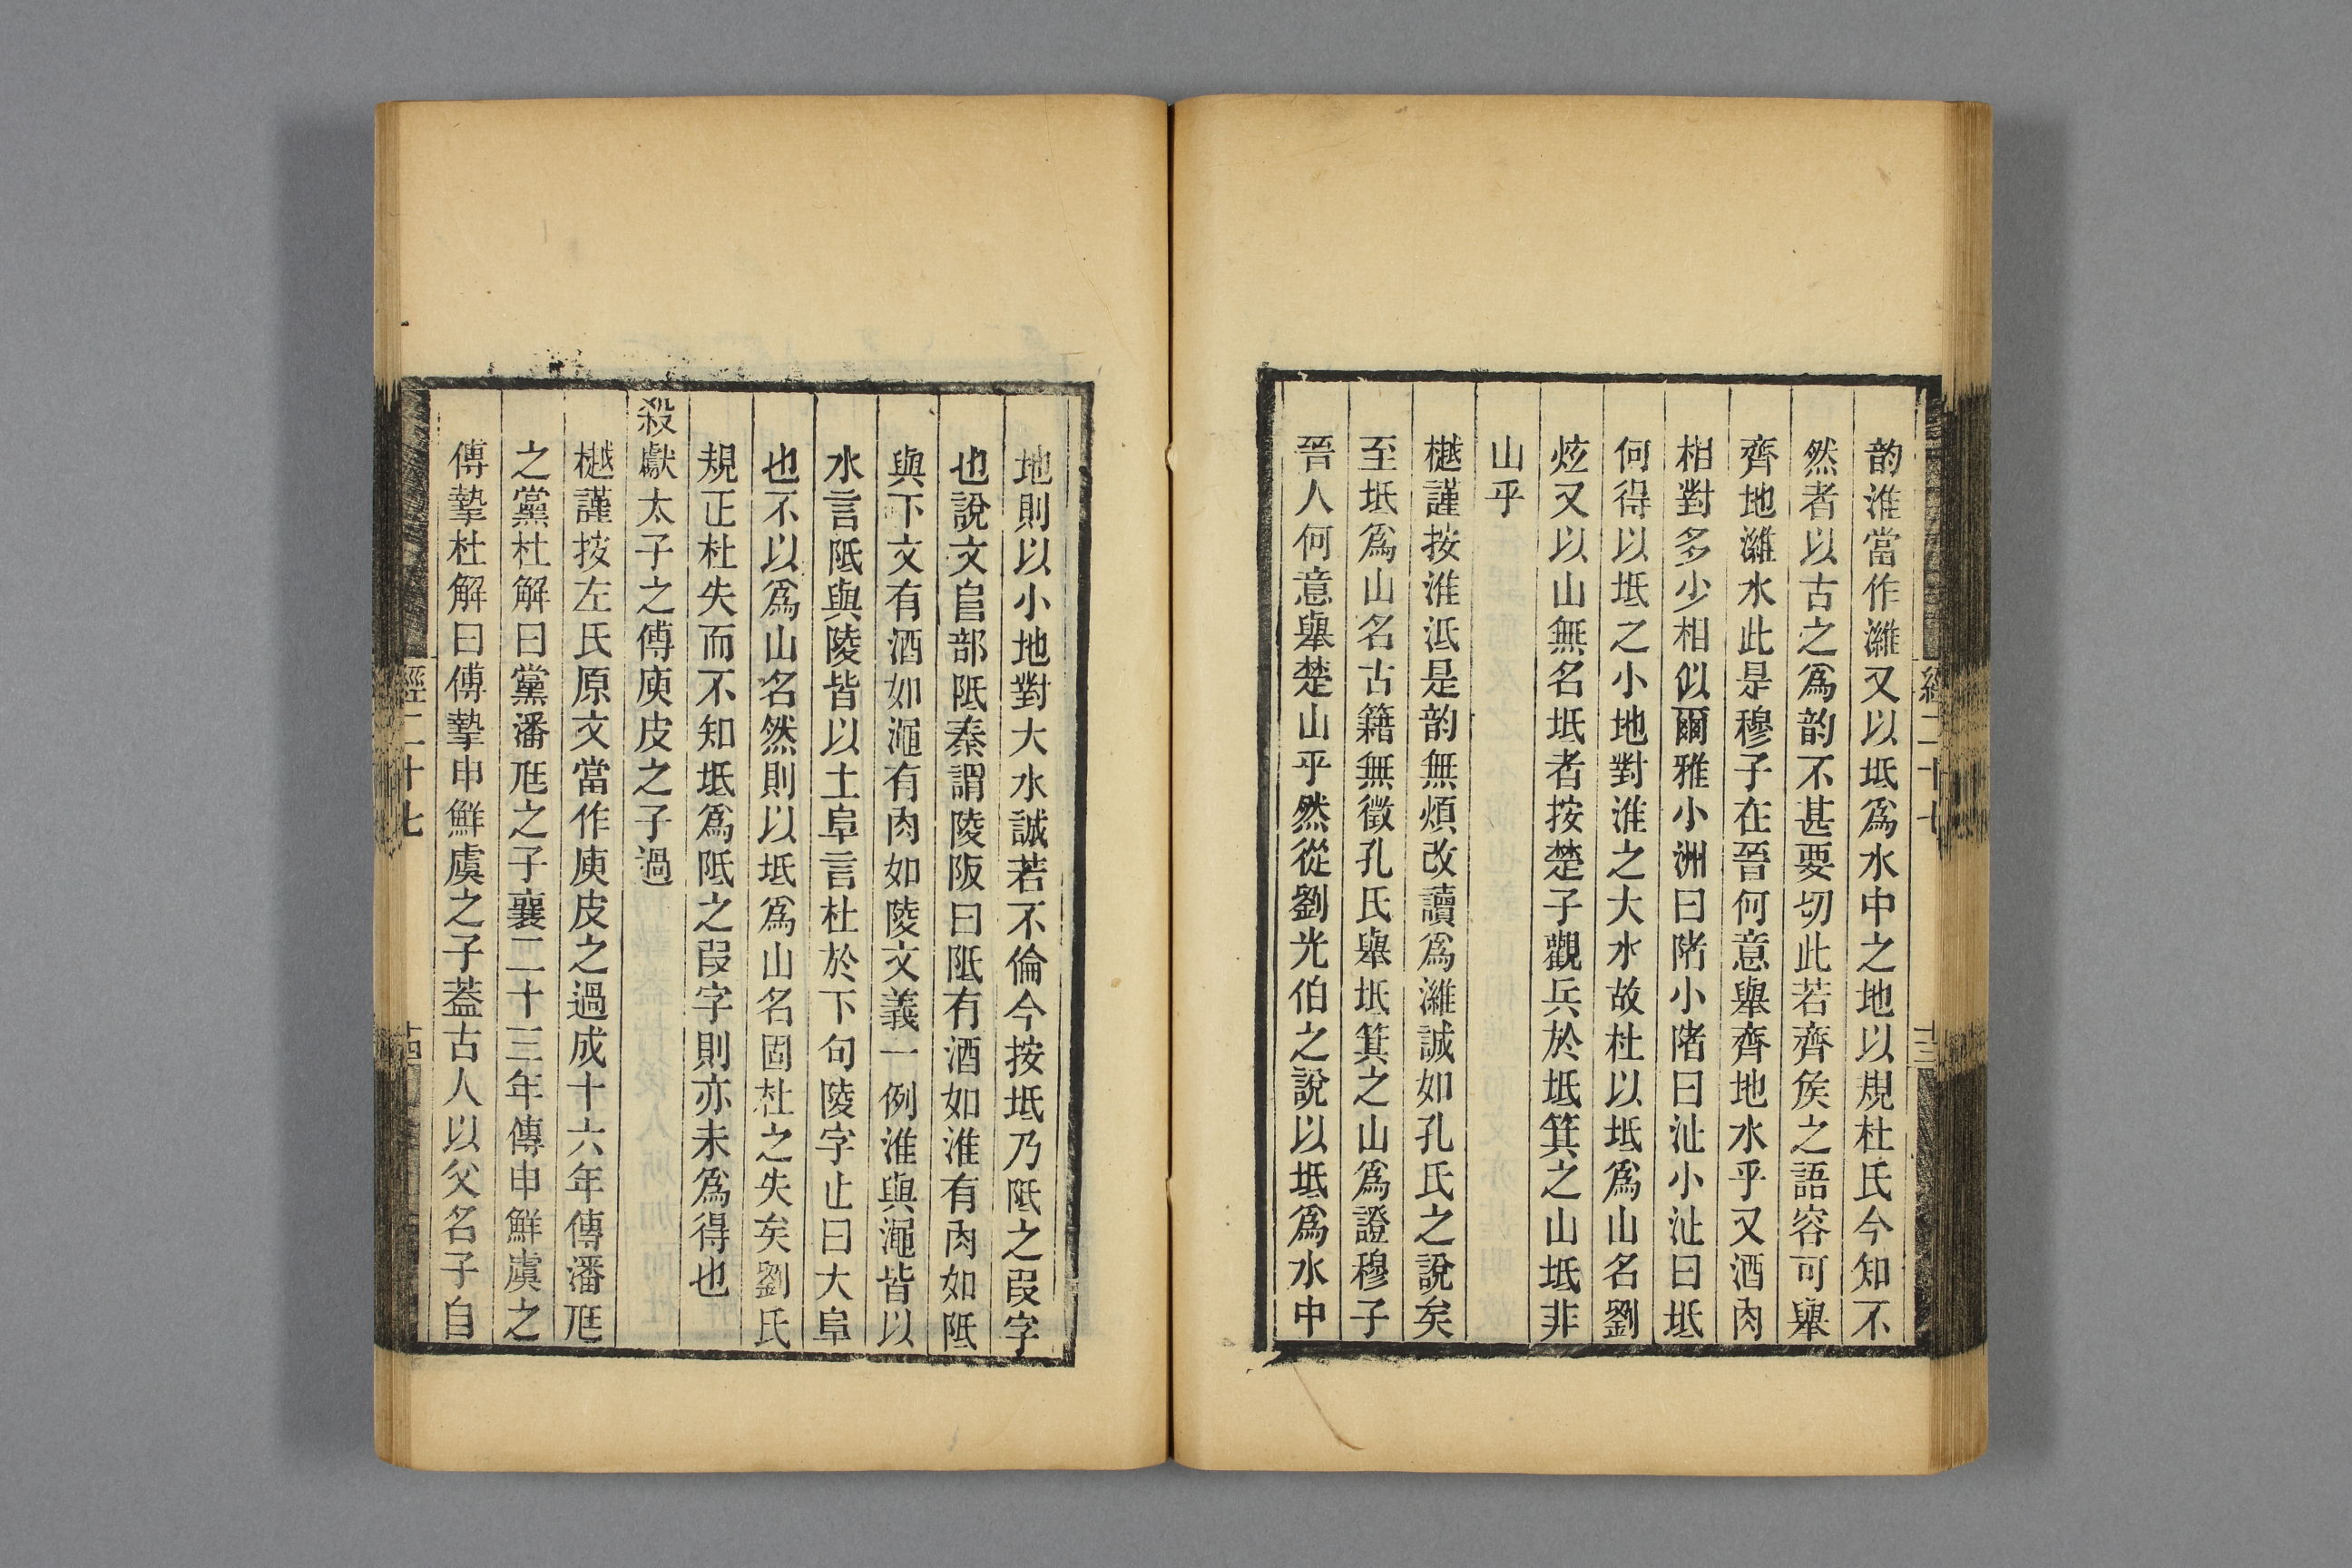 韵淮當作濰又以坻爲水中之地以規杜氏今知不
然者以古之爲韵不甚要切此若齊矦之語容可舉
齊地濰水此是穆子在晉何意舉齊地水乎又酒肉
相對多少相似爾雅小洲曰陼小陼曰沚小沚曰坻
何得以坻之小地對淮之大水故杜以坻爲山名劉
炫又以山無名坻者按楚子觀兵於坻箕之山坻非
山乎
樾謹按淮泜是韵無煩改讀爲濰誠如孔氏之說矣
至坻爲山名古籍無徵孔氏舉坻箕之山爲證穆子
晉人何意舉楚山乎然從劉光伯之說以坻爲水中
地則以小地對大水誠若不倫今按坻乃阺之叚字
也說文𨸏部阺秦謂陵阪曰阺有酒如淮有肉如阺
與下文有酒如澠有肉如陵文義一例淮與澠皆以
水言阺與陵皆以土阜言杜於下句陵字止曰大阜
也不以爲山名然則以坻爲山名固杜之失矣劉氏
規正杜失而不知坻爲阺之叚字則亦未爲得也
殺獻太子之傅庾皮之子過
樾謹按左氏原文當作庾皮之過成十六年傳潘尫
之黨杜解曰黨潘尫之子襄二十三年傳申鮮虞之
傅摯杜解曰傅摯申鮮虞之子葢古人以父名子自
經二十七
十四